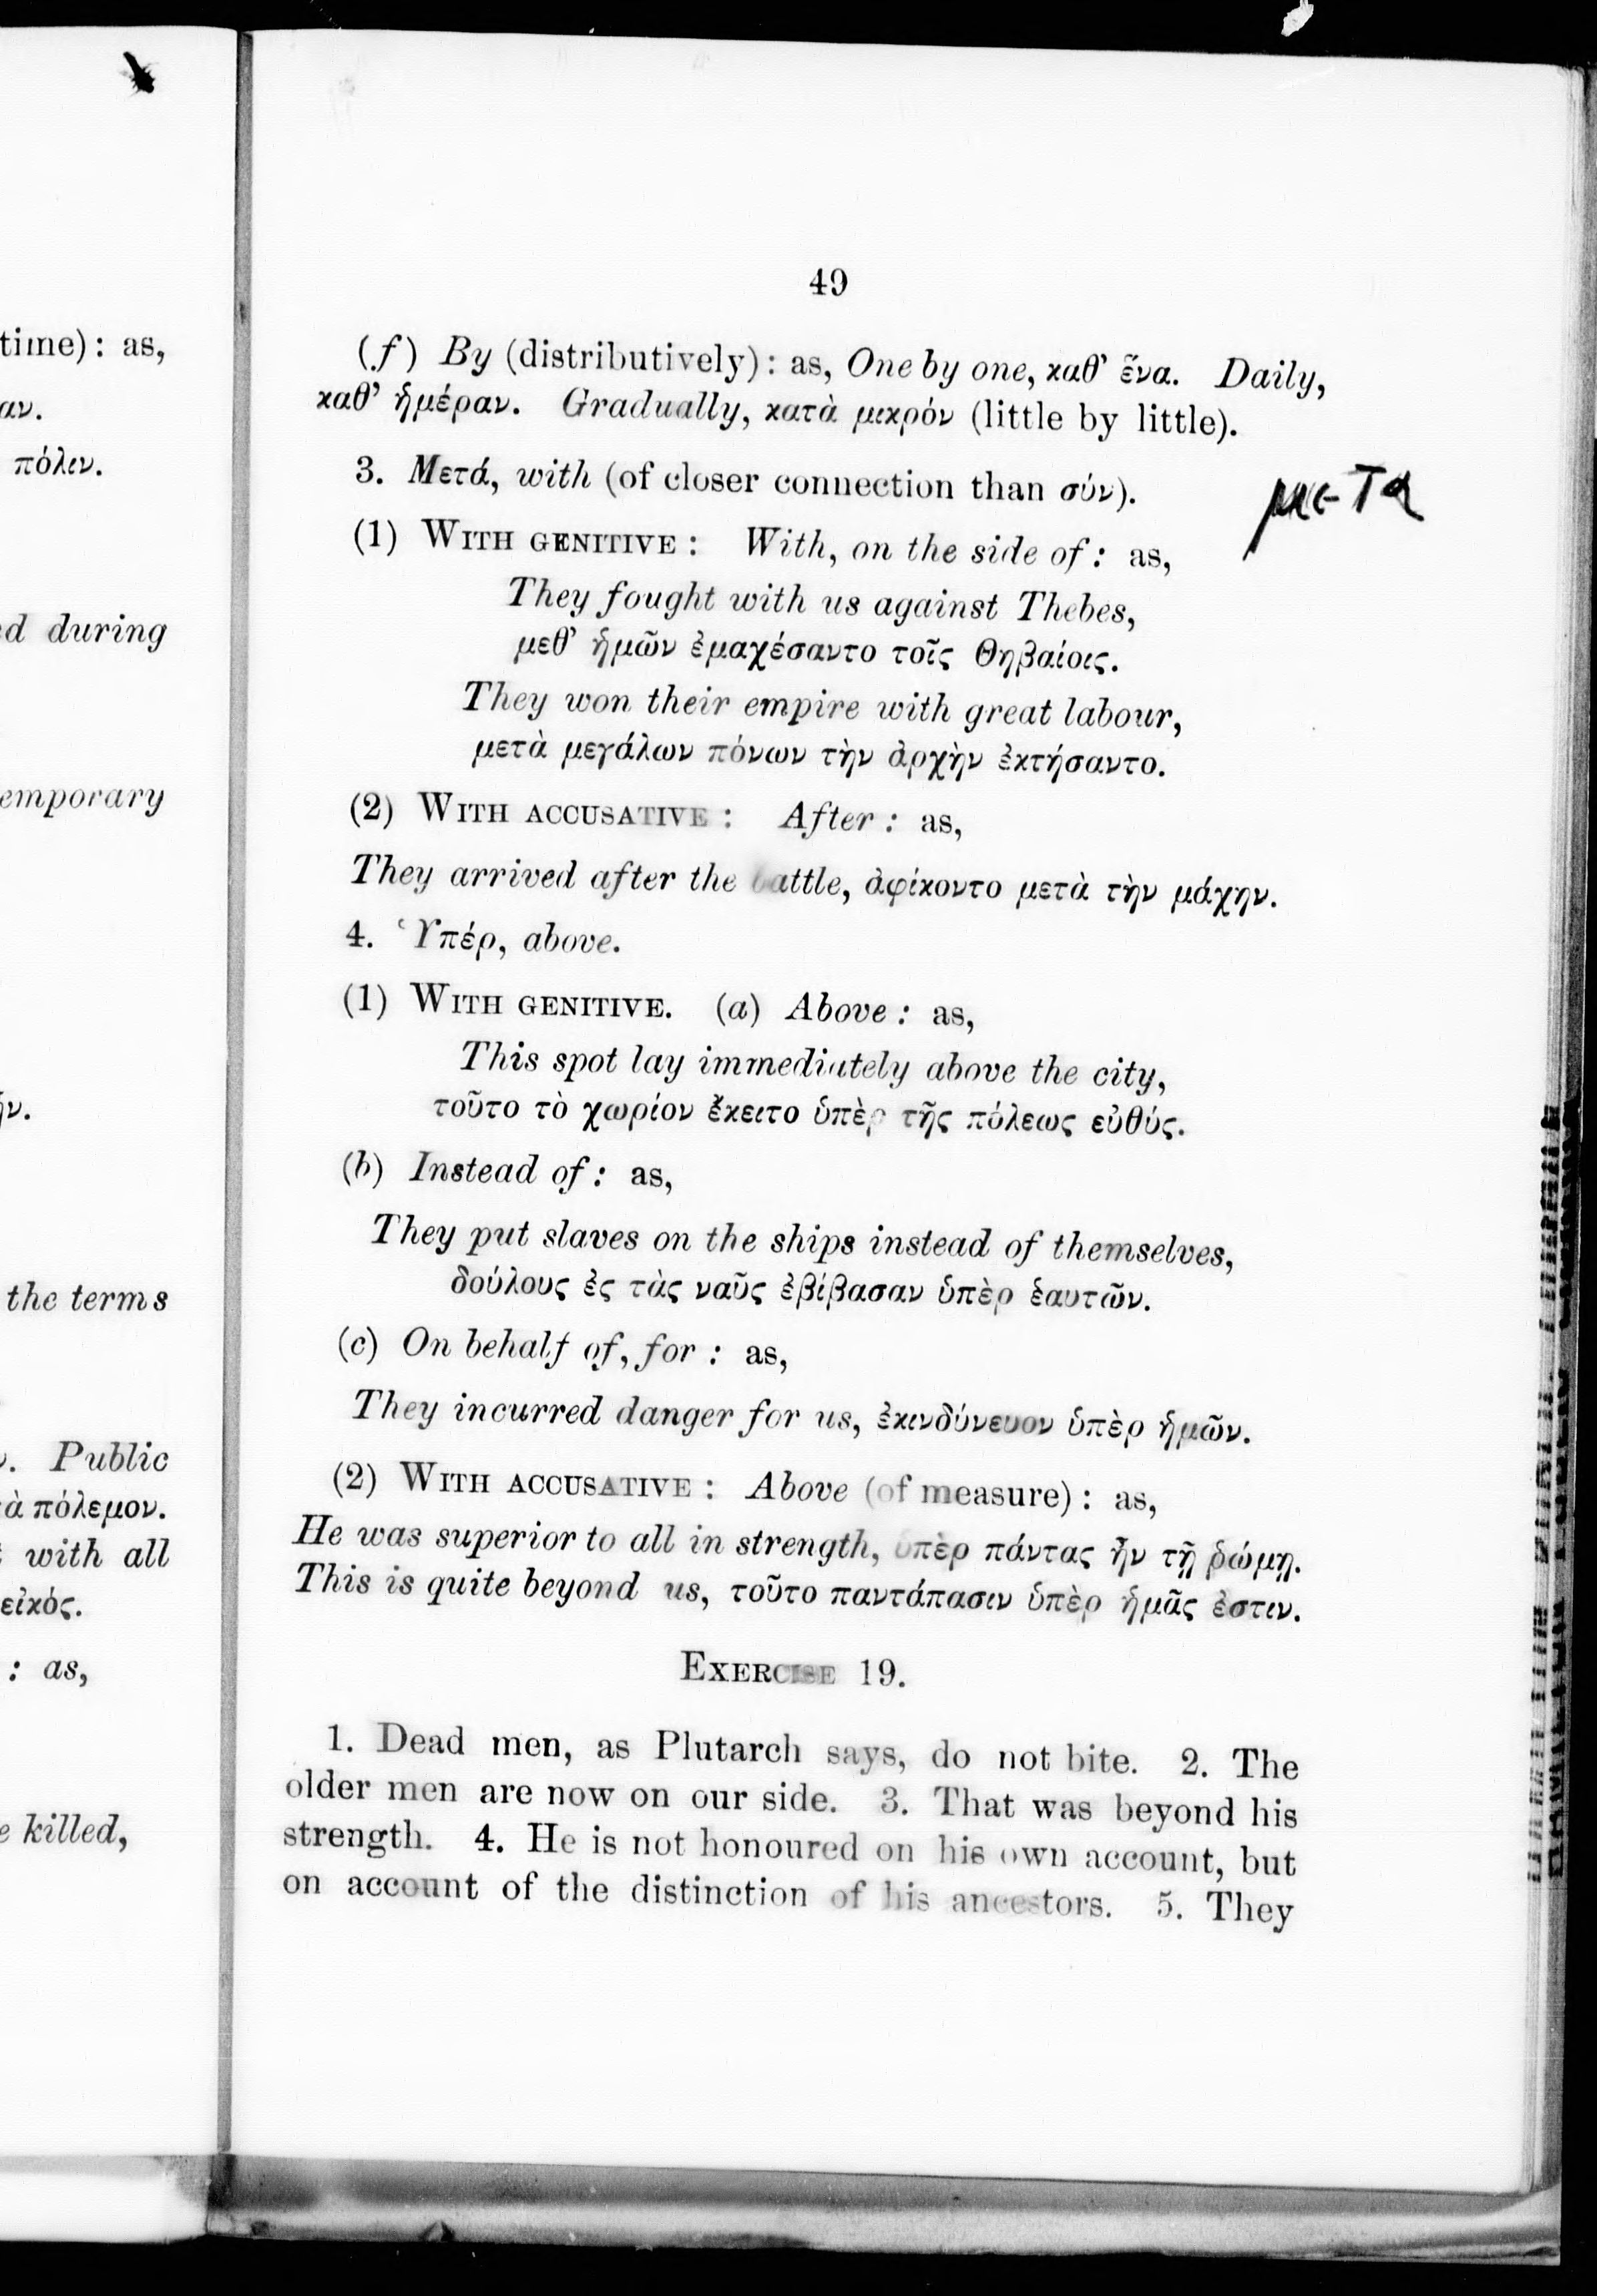 time): as,
αν.
πόλιν.
during
emporary
the terms
Public
πόλεμον.
with all
εἰκός.
: as,
killed,
49
(f) By (distributively): as, One by one, καθ’ ἕνα. Daily,
καθ’ ἡμέραν. Gradually, κατὰ μικρόν (little by little).
3. Μετά, with (of closer connection than σύν).
μετα
(1) WITH GENITIVE: With, on the side of: as,
They fought with us against Thebes,
μεθ’ ἡμῶν ἐμαχέσαντο τοῖς Θηβαίοις.
They won their empire with great labour,
μετὰ μεγάλων πόνων τὴν ἀρχὴν ἐκτήσαντο.
(2) WITH ACCUSATIVE: After: as,
They arrived after the battle, ἀφίκοντο μετὰ τὴν μάχην.
4. Ὑπέρ, above.
(1) WITH GENITIVE. (a) Above: as,
This spot lay immediately above the city,
τοῦτο τὸ χωρίον ἔκειτο ὑπὲρ τῆς πόλεως εὐθύς.
(b) Instead of: as,
They put slaves on the ships instead of themselves,
δούλους ἐς τὰς ναῦς ἐβίβασαν ὑπὲρ ἑαυτῶν.
(c) On behalf of, for: as,
They incurred danger for us, ἐκινδύνευον ὑπὲρ ἡμῶν.
(2) WITH ACCUSATIVE: Above (of measure): as,
He was superior to all in strength, ὑπὲρ πάντας ἦν τῇ ῥώμῃ.
This is quite beyond us, τοῦτο παντάπασιν ὑπὲρ ἡμᾶς ἐστιν.
EXERCISE 19.
1. Dead men, as Plutarch says, do not bite. 2. The
older men are now on our side. 3. That was beyond his
strength. 4. He is not honoured on his own account, but
on account of the distinction of his ancestors. 5. They